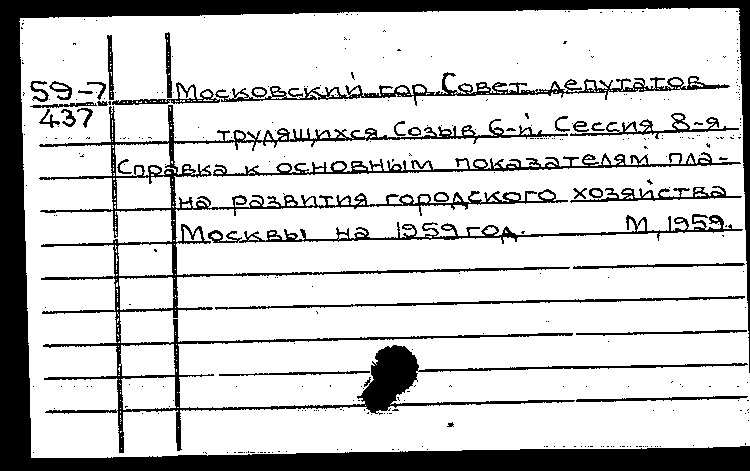 59-7 Московский гор. Совет депутатов
437
трудящихся. Созыв 6-й. Сессия 8-я.
Справка к основным показателям пла-
на развития городского хозяйства
Москвы на 1959 год. М, 1959.